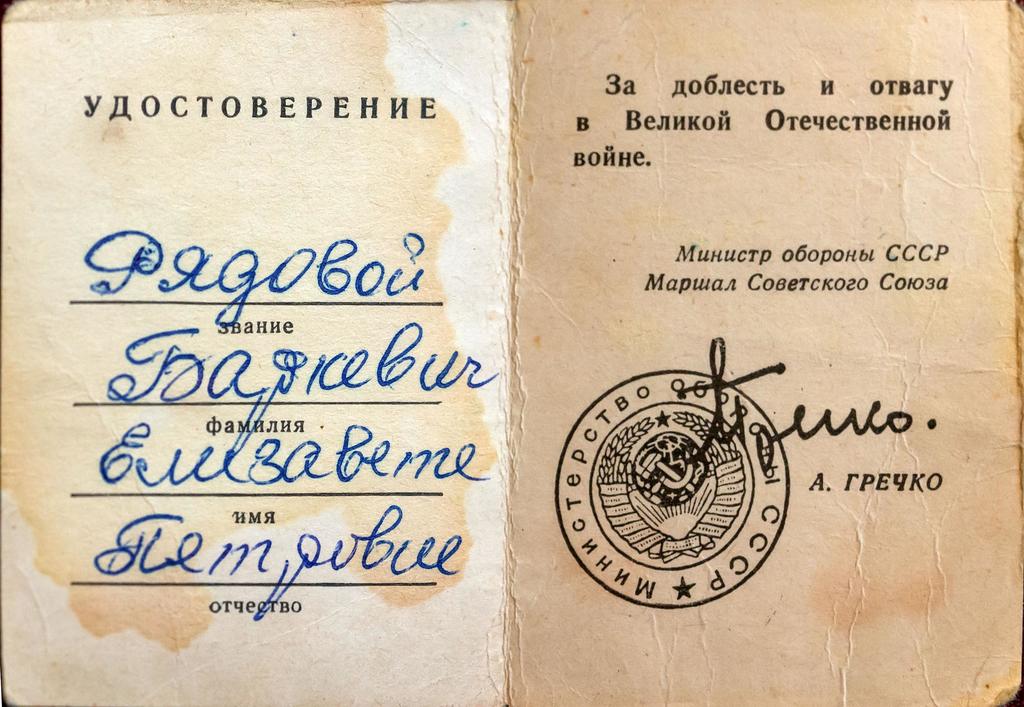 УДОСТОВЕРЕНИЕ
Рядовой
звание
Бажевич
фамилия
Елизавете
имя
Петровне
отчество
За доблесть и отвагу
в Великой Отечественной
войне.
Министр обороны СССР
Маршал Советского Союза
Гречко.
А. ГРЕЧКО
МИНИСТЕРСТВО ОБОРОНЫ СССР